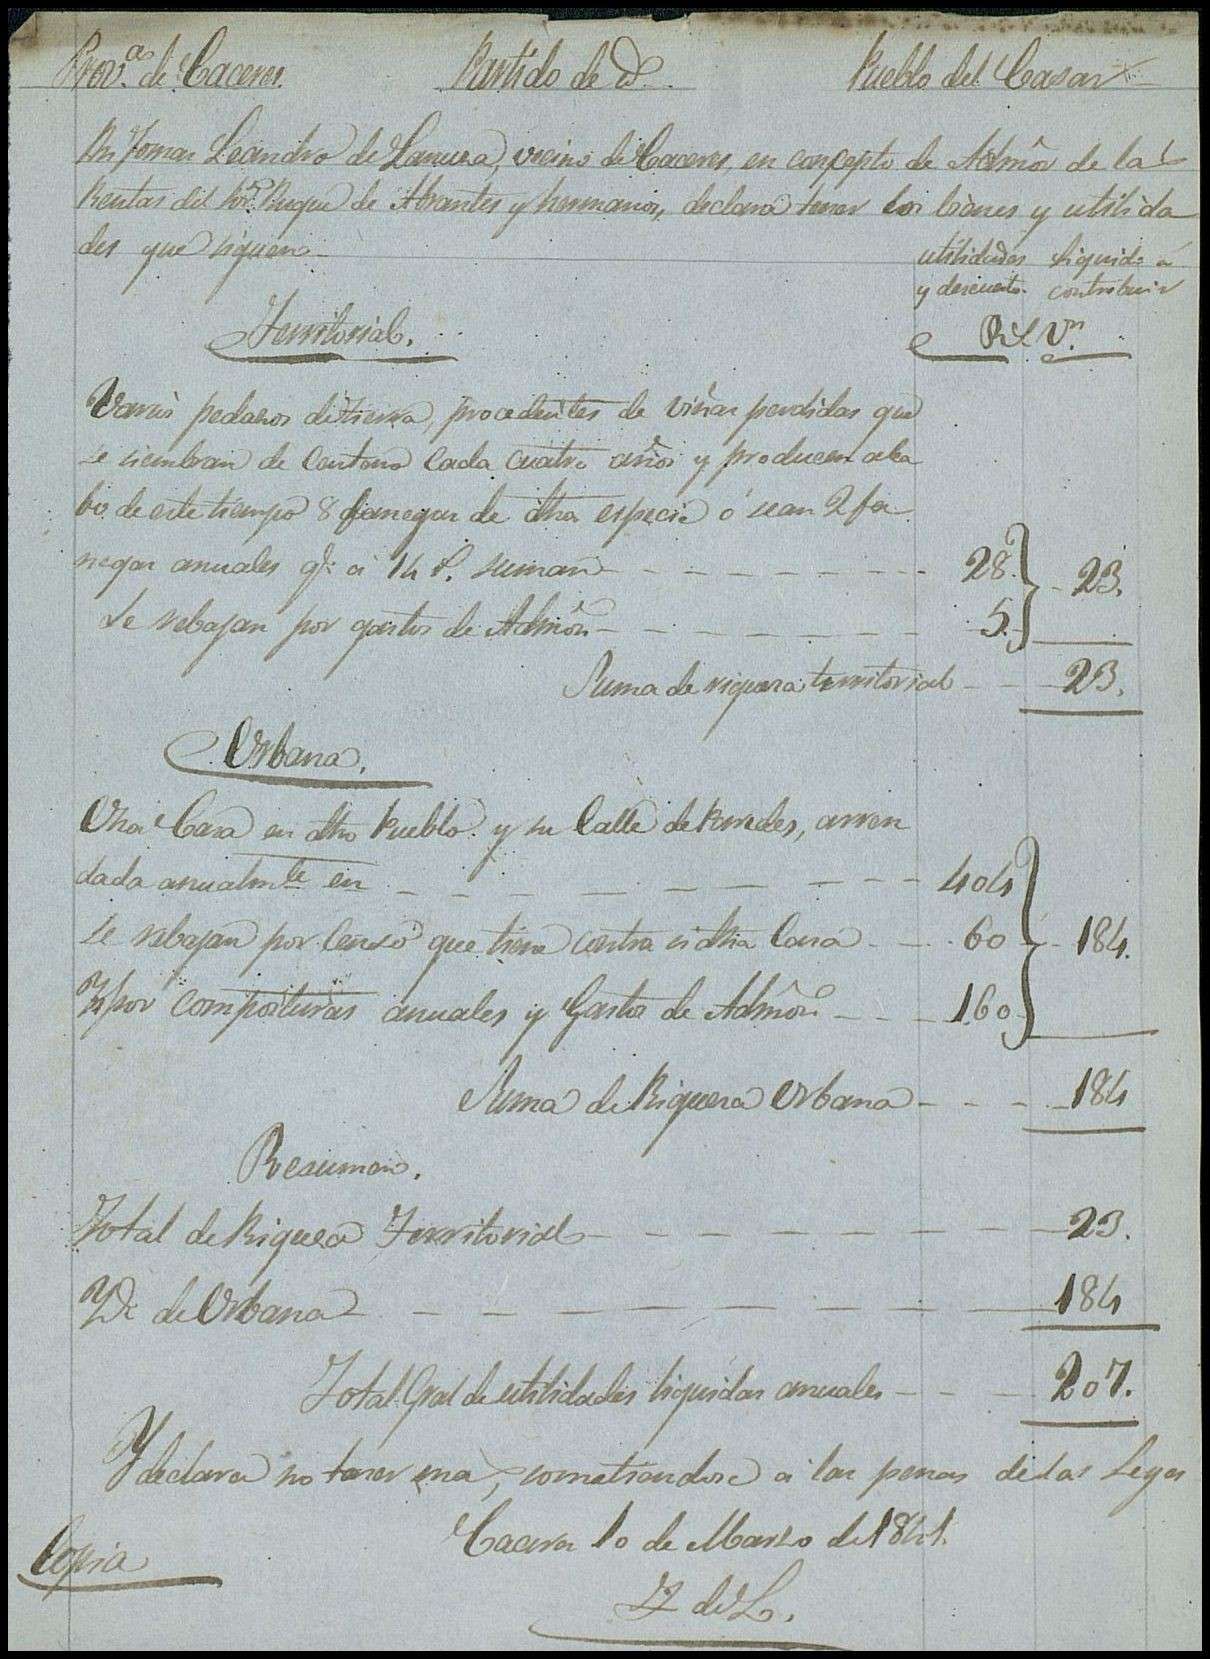 Prov.ª de Caceres. Partido de id. Pueblo del Casar
Dn Tomas Leandro de Lanuza, vecino de Caceres, en concepto de Admôr de las
Rentas del Sor. Duque de Abrantes y hermanos, declara tener los bienes y utilida
des que siguen.
utilidades liquido a
y descuento. contribuir
Territorial.
Rs Vn.
Varios pedazos de tierra, procedentes de viñas perdidas que
se siembran de Centeno cada cuatro años y producen al ca
bo de este tiempo 8 fanegas de dha especie ó sean 2 fa
negas anuales q.e a 14 r. suman 28. 23.
Se rebajan por gastos de Admôn 5.
Suma de riqueza territorial 23.
Urbana.
Una Casa en dho Pueblo y su Calle de Paredes, arren
dada anualmte en 404
Se rebajan por Censo que tiene contra si dha Casa 60 184.
Y por composturas anuales y Gastos de Admôn 160
Suma de Riqueza Urbana 184
Resumen.
Total de Riqueza Territorial 23.
Yd. de Urbana 184
Total Gral de utilidades liquidas anuales 207.
Y declara no tener mas, sometiendose a las penas de las Leyes
Caceres 10 de Marzo de 1841.
Copia
T. de L.